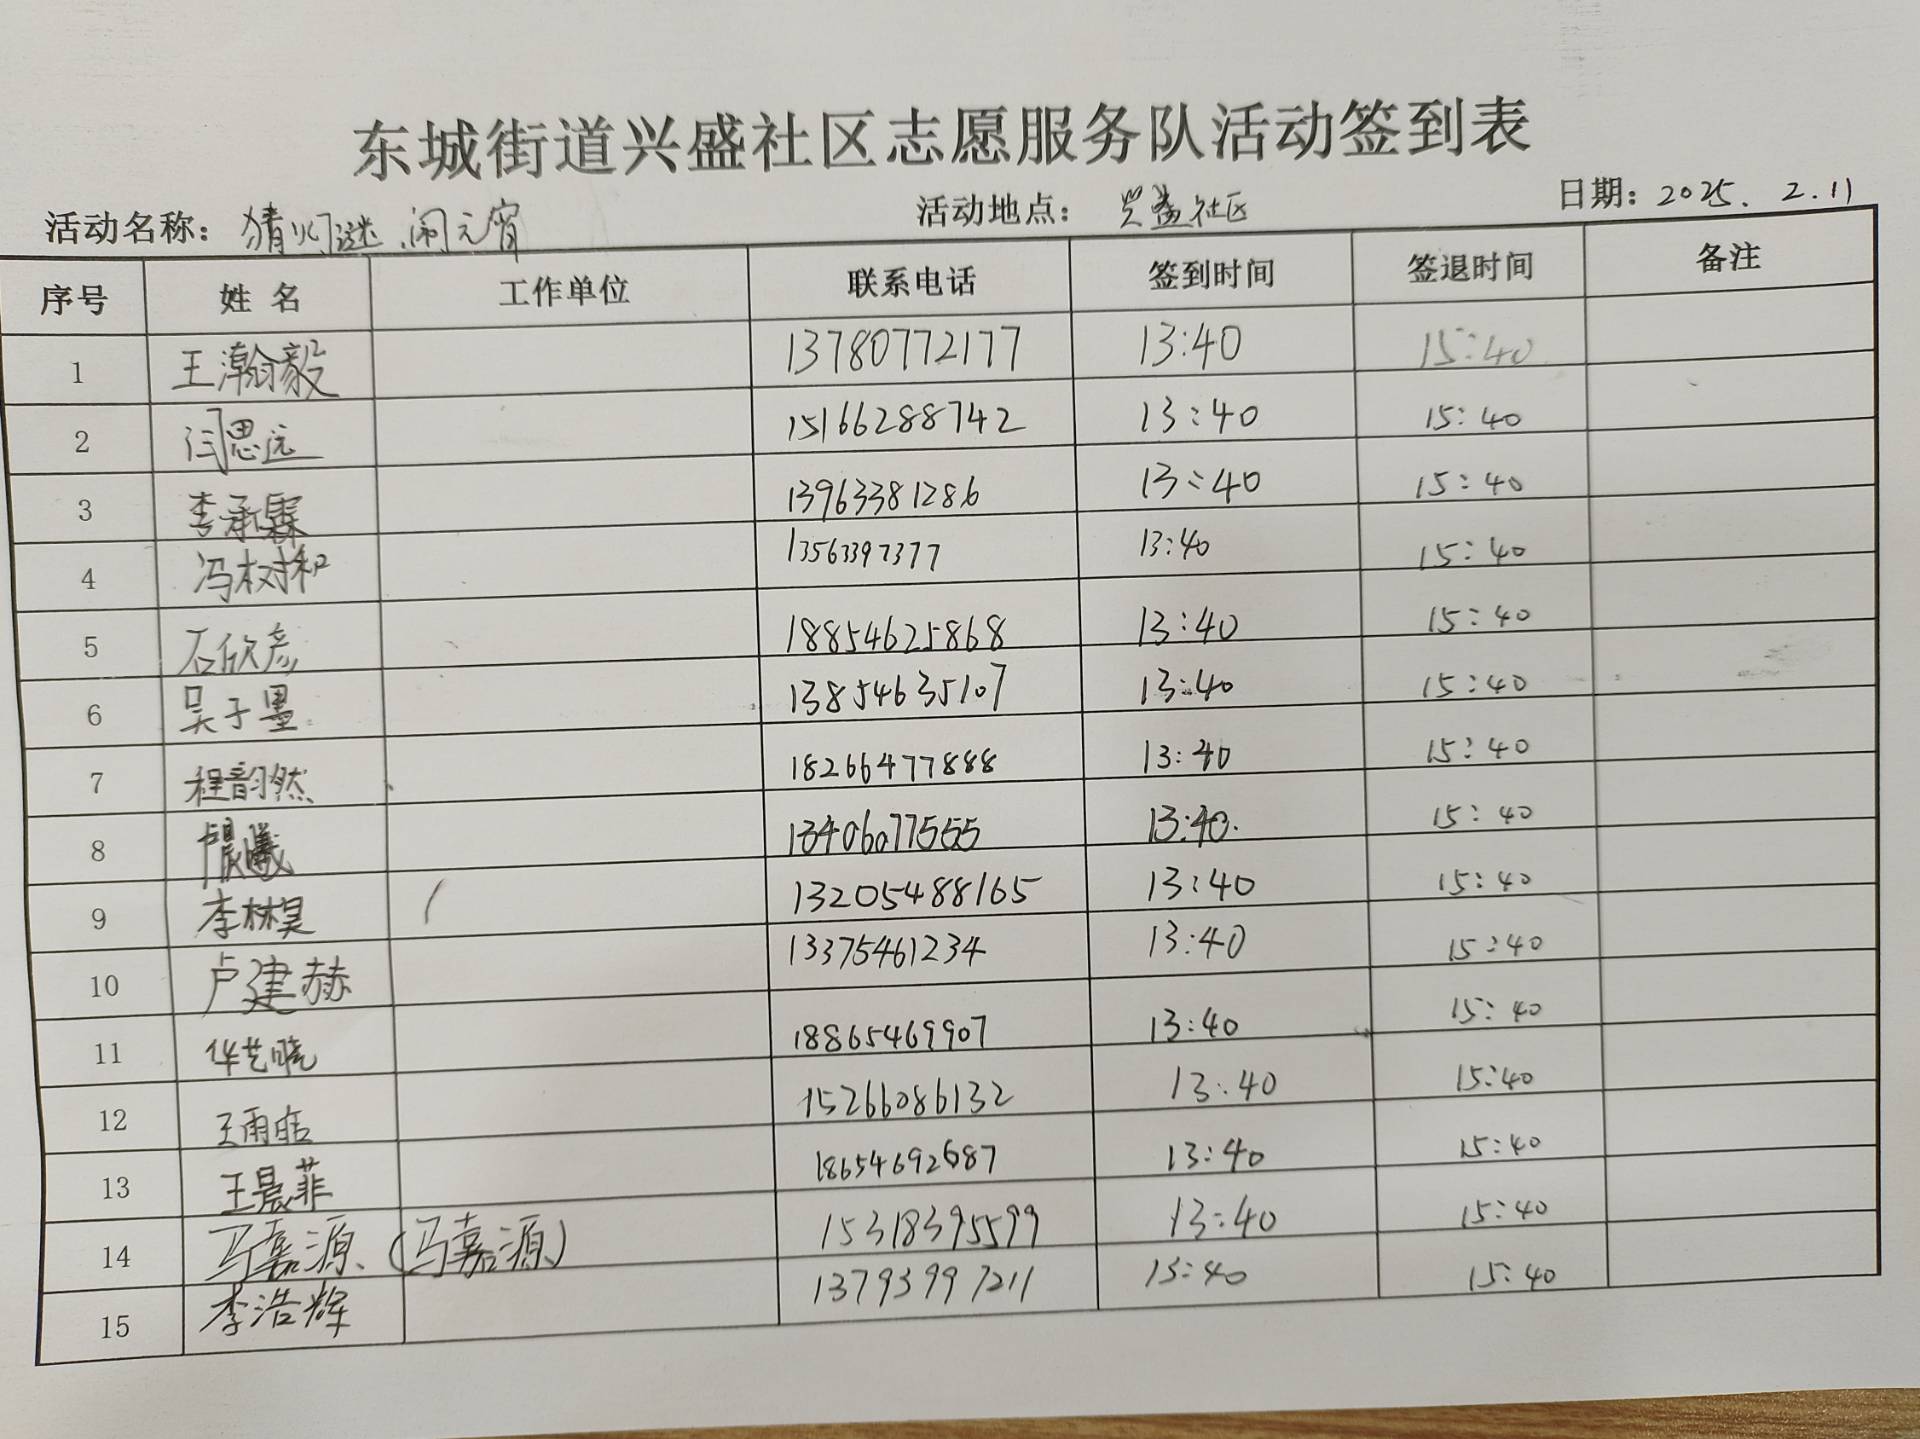 东城街道兴盛社区志愿服务队活动签到表
活动名称：猜灯谜、闹元宵 活动地点：兴盛社区 日期：2025.2.11
序号 姓名 工作单位 联系电话 签到时间 签退时间 备注
1 王瀚毅 13780772177 13:40 15:40
2 闫思远 15166288742 13:40 15:40
3 李承霖 13963381286 13:40 15:40
4 冯树和 13563397377 13:40 15:40
5 石欣彦 18854625868 13:40 15:40
6 吴子墨 13854635107 13:40 15:40
7 程韵然 18266477888 13:40 15:40
8 13406077555 13:40. 15:40
9 李林昊 13205488165 13:40 15:40
10 卢建赫 13375461234 13:40 15:40
11 华艺晓 18865469907 13:40 15:40
12 王雨 15266086132 13:40 15:40
13 王晨菲 18654692687 13:40 15:40
14 马嘉源、(马嘉源) 15318395599 13:40 15:40
15 李浩辉 13793997211 13:40 15:40